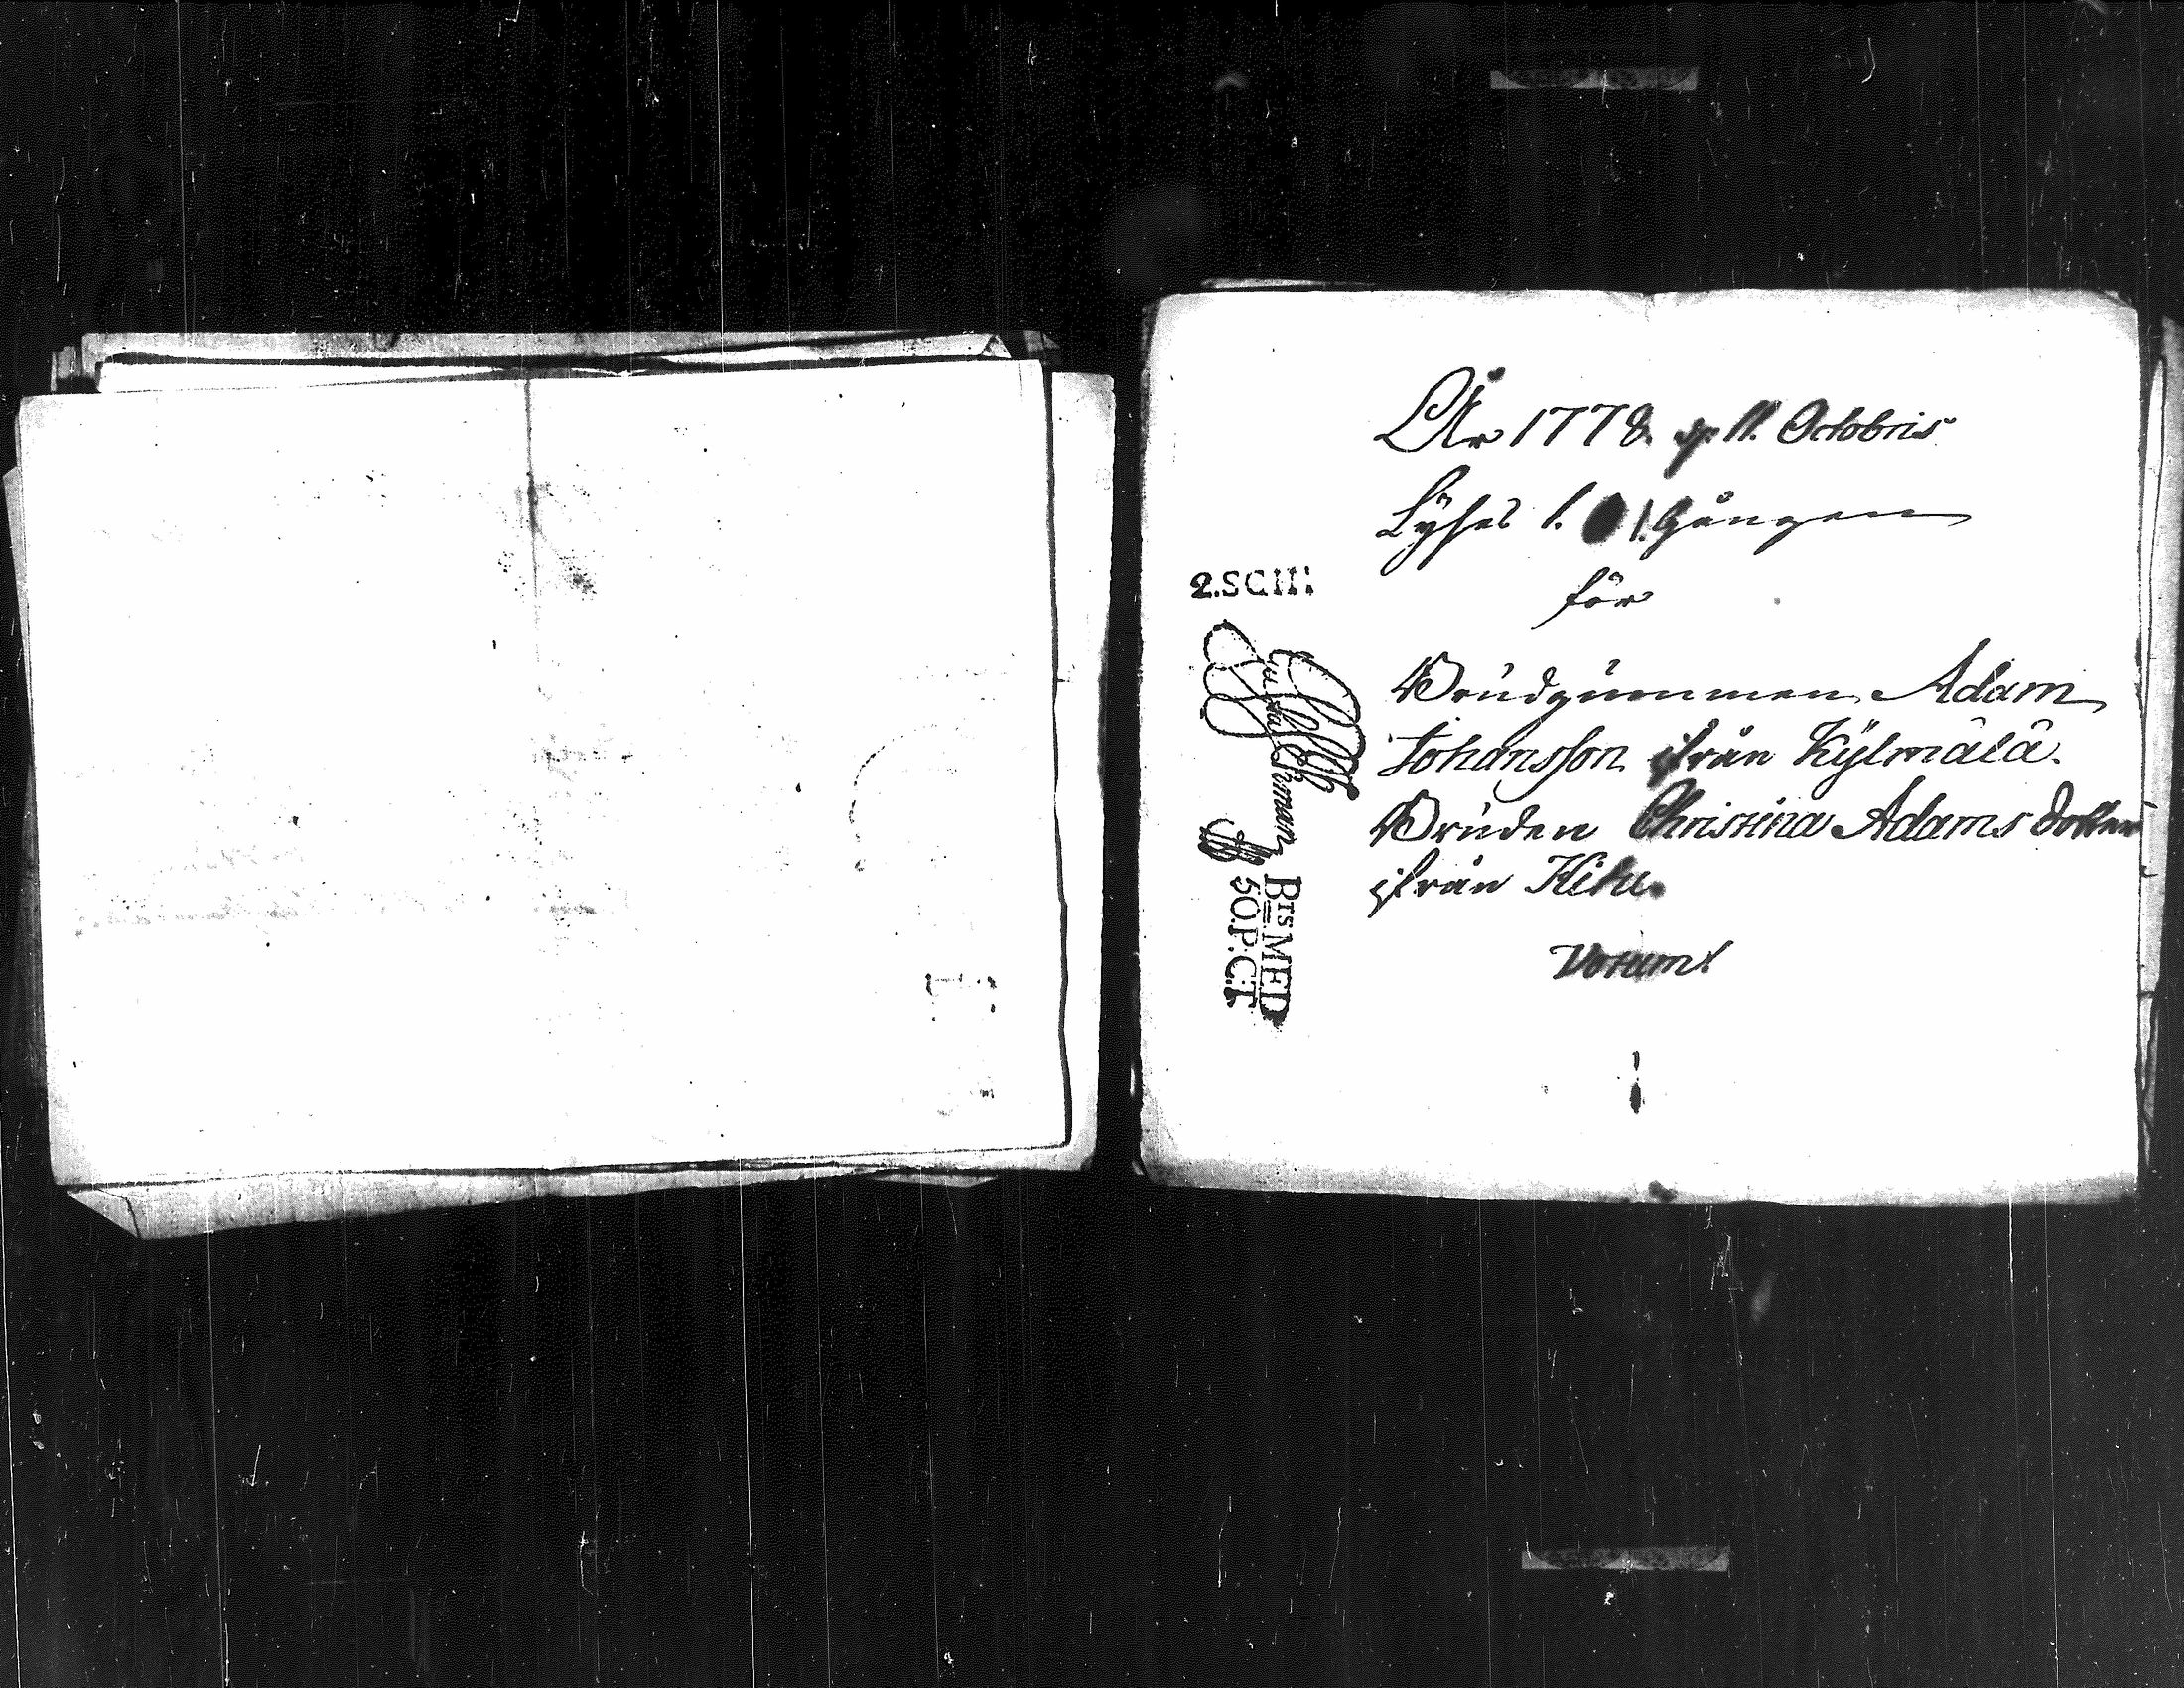 År 1778. d. 11. Octobris
Lyses 1. 1. Gången
för
Brudgummen Adam
Johansson ifrån Kylmälä.
Bruden Christina Adams dotter
ifrån Kitu.
Votum!
2.SCH:
Gustaf Ehrman
BTS MED
50.P:C:T